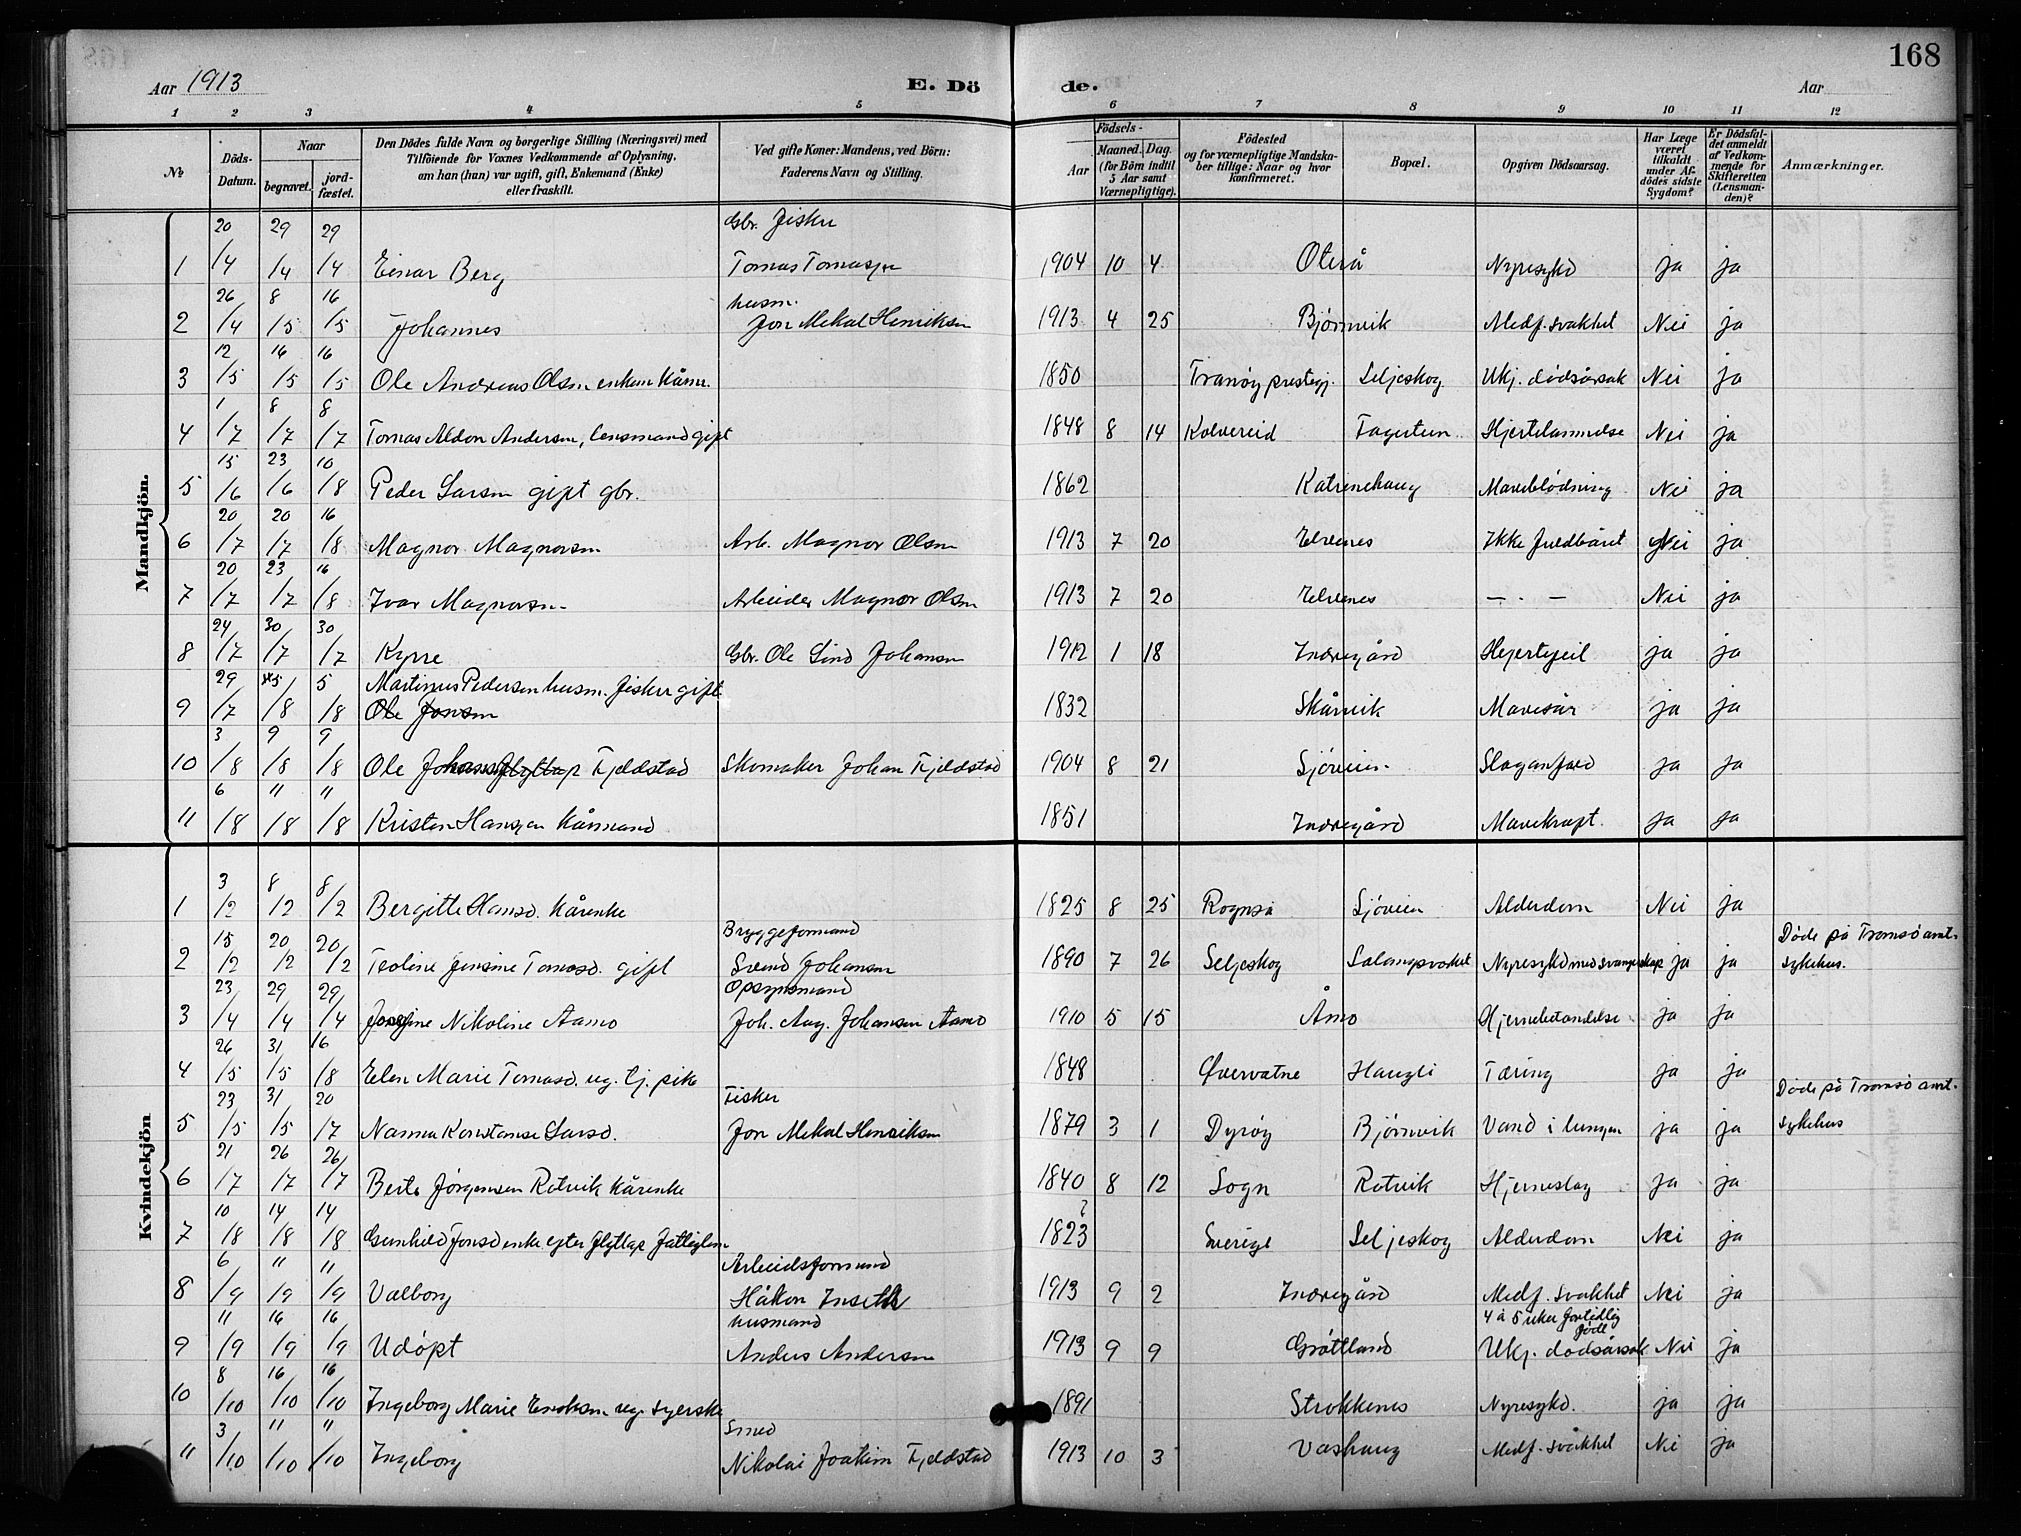 168
Aar 1913 E. Dö de. Aar
1 2 3 4 5 6 7 8 9 10 11 12
№
Döds-Datum.
Naar
begravet.
jord-fæstet.
Den Dödes fulde Navn og borgerlige Stilling (Næringsvei) med
Tilföiende for Voxnes Vedkommende af Oplysning,
om han (hun) var ugift, gift, Enkemand (Enke)
eller fraskilt.
Ved gifte Koner: Mandens, ved Börn:
Faderens Navn og Stilling.
Födsels-
Aar
Maaned. Dag.
(for Börn indtil
5 Aar samt
Værnepligtige).
Födested
og for værnepligtige Mandska-
ber tillige: Naar og hvor
konfirmeret.
Bopæl.
Opgiven Dödsaarsag.
Har Læge
været
tilkaldt
under Af-
dödes sidste
Sygdom?
Er Dödsfal-
det anmeldt
af Vedkom-
mende for
Skifteretten
(Lensman-
den)?
Anmærkninger.
Mandkjön.
1 20/4 29/4 29/4 Einar Berg Gbr. Fisker Tomas Tomassen 1904 10 4 Oterå Nyresykd ja ja
2 26/4 8/5 16/5 Johannes husm. Jon Mekal Henriksen 1913 4 25 Bjørnvik Medf. svakhet Nei ja
3 12/5 16/5 16/5 Ole Andreas Olsen enkem kårm. 1850 Tranøy prestegj. Seljeskog Ukj. dødsårsak Nei ja
4 1/7 8/7 8/7 Tomas Aldon Andersen, lensmand gift 1848 8 14 Kolvereid Fagerteun Hjertelammelse Nei ja
5 15/6 23/6 10/8 Peder Larsen gift gbr. 1862 Katrinehaug Maveblødning Nei ja
6 20/7 20/7 16/8 Magnor Magnorsen Arb. Magnor Olsen 1913 7 20 Elvenes Ikke fuldbåret Nei ja
7 20/7 23/7 16/8 Ivar Magnorsen Arbeider Magnor Olsen 1913 7 20 Elvenes — . — Nei ja
8 24/7 30/7 30/7 Kyrre Gbr. Ole Lind Johansen 1912 1 18 Indregård Hjertefeil ja ja
9 29/7 5/8 5/8 Martinus Pedersen husm. fisker gift Ole Jonsen 1832 Skårvik Mavesår ja ja
10 3/8 9/8 9/8 Ole Fjeldstad Skomaker Johan Fjeldstad 1904 8 21 Sjøveien Slaganfald ja ja
11 6/8 11/8 11/8 Kristen Hansen kårmand 1851 Indregård Mavekræft. ja ja
Kvindekjön
1 3/2 8/2 8/2 Bergitte Hansd. kårenke 1825 8 25 Rognså Sjøveien Alderdom Nei ja
2 15/2 20/2 20/2 Teoline Jensine Tomasd. gift Bryggeformand Svend Johansen 1890 7 26 Seljeskog Salangsverket Nyresykd med svangerskap ja ja Døde på Tromsø amt. sykehus.
3 23/4 29/4 29/4 Josefine Nikoline Aamo Opsynsmand Joh. Aug. Johansen Aamo 1910 5 15 Åmo Hjernebetændelse ja ja
4 26/5 31/5 16/8 Elen Marie Tomasd. ug. tj. pike 1848 Øvervatne Haugli Tæring ja ja
5 23/5 31/5 20/7 Nanna Konstanse Larsd. Fisker Jon Mekal Henriksen 1879 3 1 Dyrøy Bjørnvik Vand i lungen ja ja Døde på Tromsø amt. sykehus
6 21/7 26/7 26/7 Berte Jørgensen Rotvik kårenke 1840 8 12 Sogn Rotvik Hjerneslag ja ja
7 10/8 14/8 14/8 Gunhild Jonsd enke efter flyttlap fattiglem 1823 ? Sverige Seljeskog Alderdom Nei ja
8 6/9 11/9 11/9 Valborg Arbeidsformand Håkon Inseth 1913 9 2 Indregård Medf. svakhet Nei ja
9 11/9 16/9 16/9 Udöpt husmand Anders Andersen 1913 9 9 Grøttland 4 à 5 uker fortidlig født Ukj. dødsårsak Nei ja
10 8/10 16/10 16/10 Ingeborg Marie Eriksen ug. syerske 1891 Strokkenes Nyresykd. ja ja
11 3/10 11/10 11/10 Ingeborg Smed Nikolai Joakim Fjeldstad 1913 10 3 Vashaug Medf. svakhet Nei ja